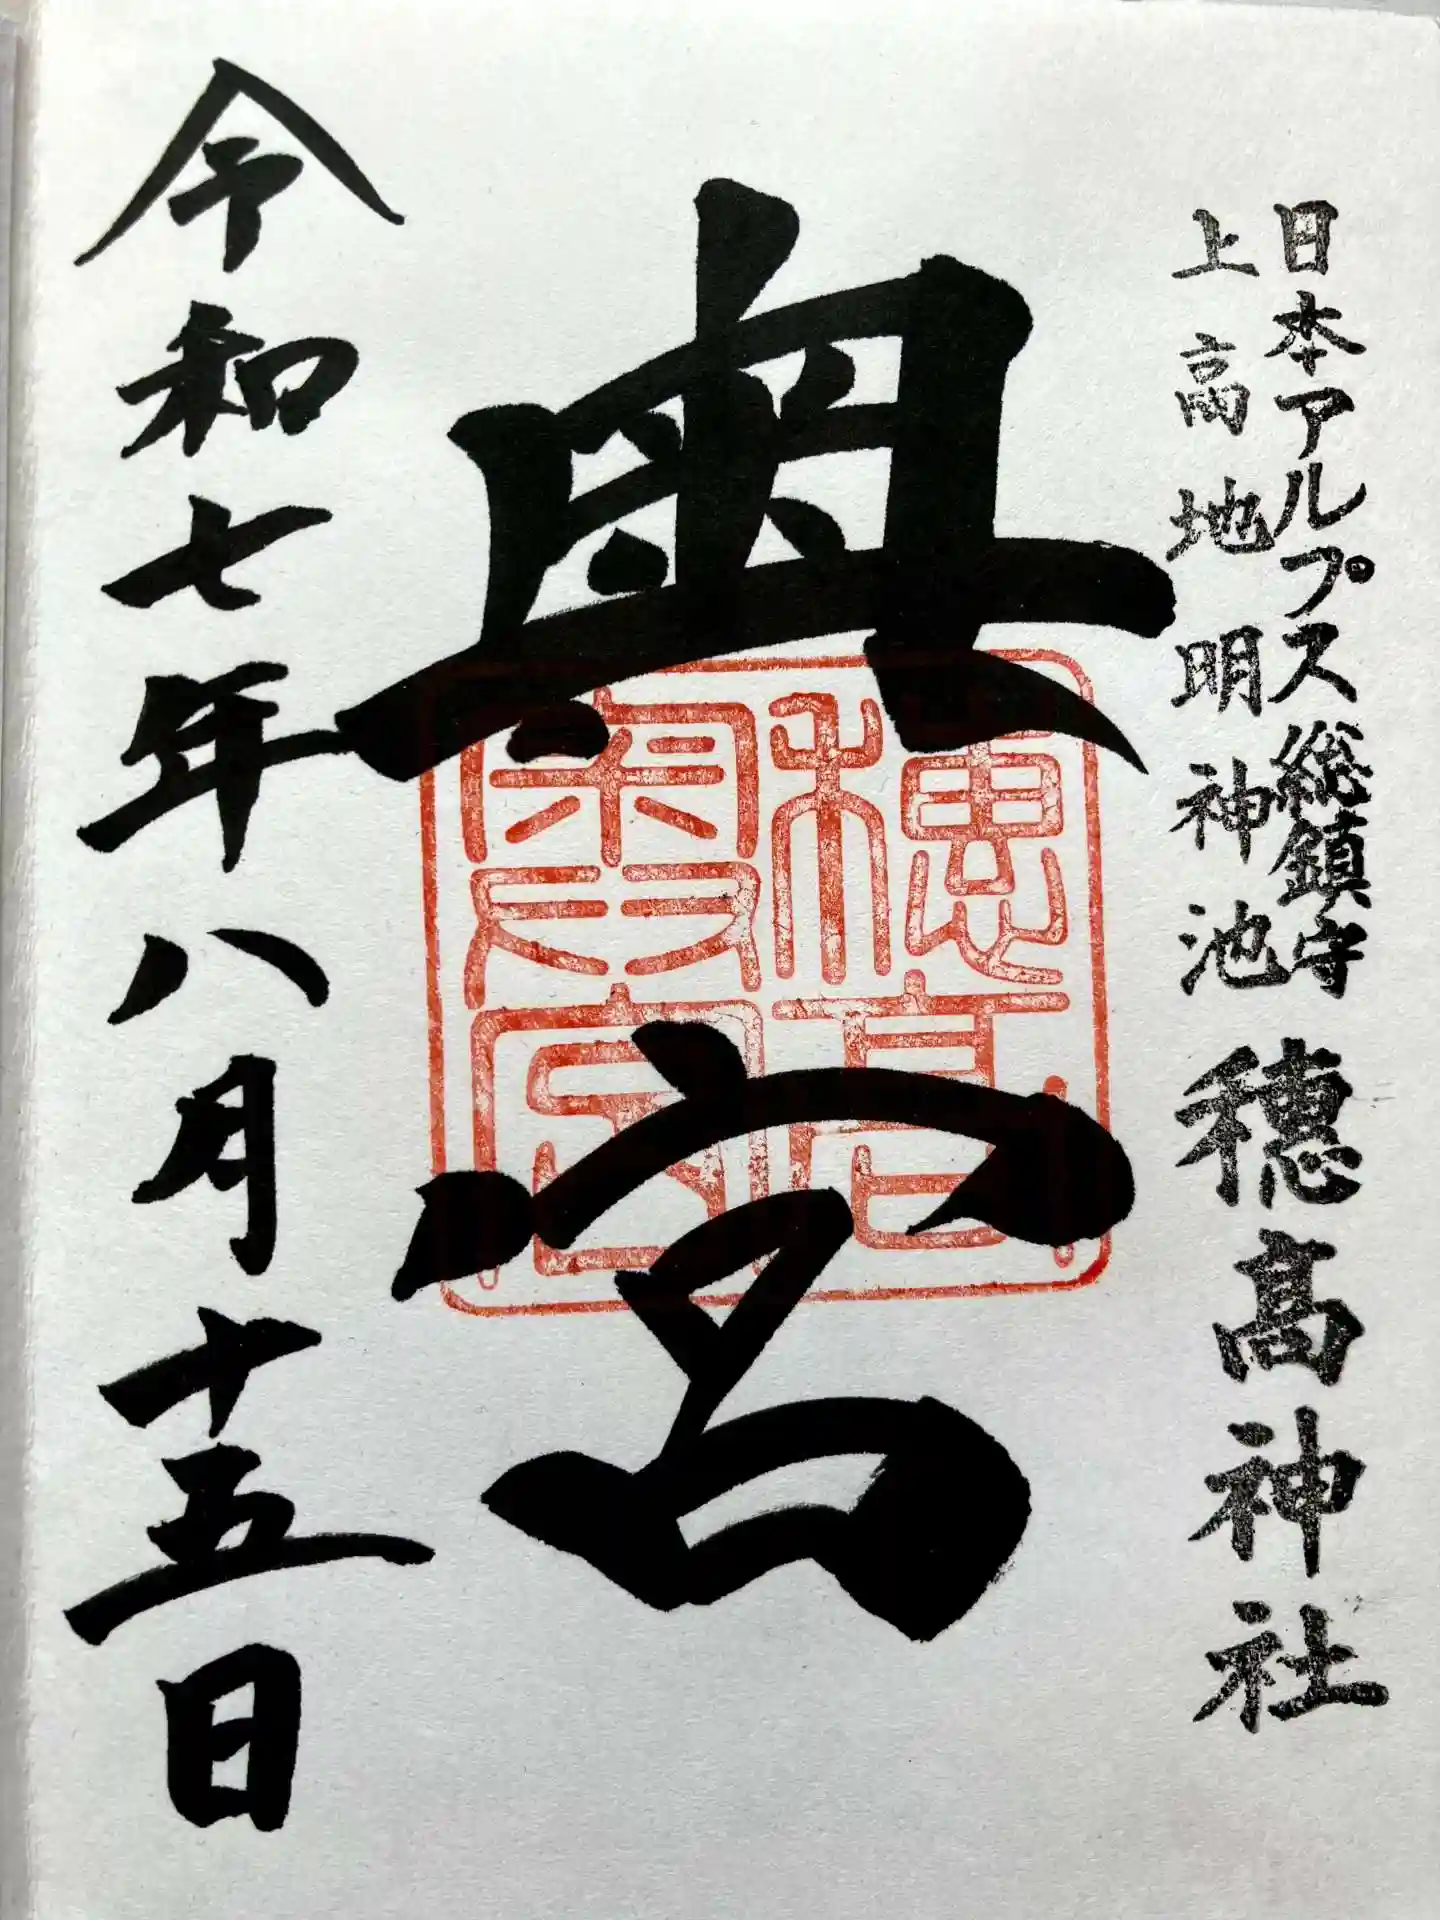 日本アルプス総鎮守
上高地明神池
穂高神社
奥宮
穂高奥宮
令和七年八月十五日